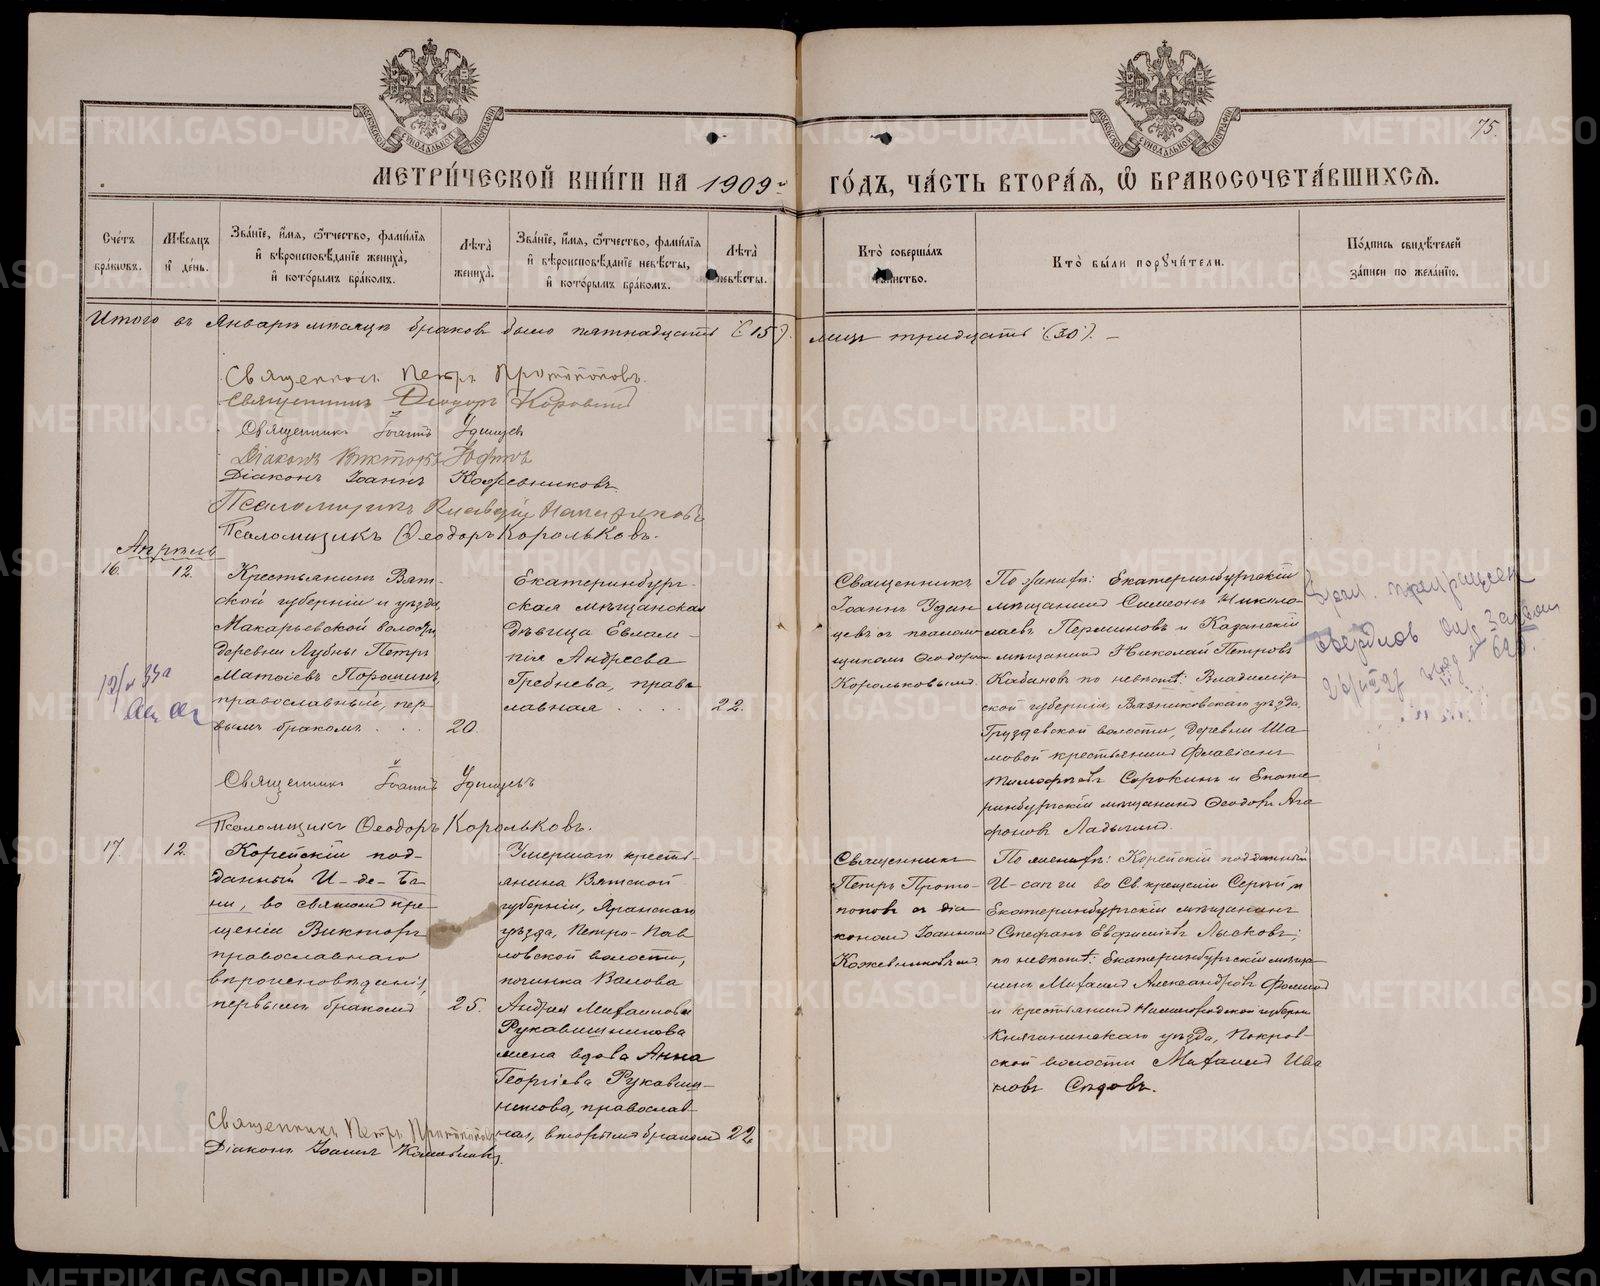 75.
МЕТРИ́ЧЕСКОЙ КНИ́ГИ НА 1909 й ГО́ДЪ, ЧА́СТЬ ВТОРА́Ѧ, Ѽ БРАКОСОЧЕТА́ВШИХСѦ.
Сче́тъ бра́кѡвъ.
Мѣ́сѧцъ и҆ де́нь.
Зва́нїе, и҆́мѧ, ѻ҆́тчество, фами́лїѧ и҆ вѣроисповѣ́данїе жениха̀, и҆ кото́рымъ бра́комъ.
Лѣ́та жениха̀.
Зва́нїе, и҆́мѧ, ѻ҆́тчество, фами́лїѧ и҆ вѣроисповѣ́данїе невѣ́сты, и҆ кото́рымъ бра́комъ.
Лѣ́та невѣ́сты.
Кто̀ соверша́лъ таинство.
Кто̀ бы́ли порꙋчи́тели.
По́дпись свидѣ́телей за́писи по жела́нїю.
Итого въ Январѣ мѣсяцѣ браковъ было пятнадцать (15). лицъ тридцать (30). —
Священникъ Петръ Протопоповъ.
Священникъ Ѳеодоръ Коровинъ
Священникъ Іоаннъ Удинцев
Діаконъ Викторъ
Діаконъ Іоаннъ Кожевниковъ
Псаломщикъ
Псаломщикъ Ѳеодоръ Корольковъ.
Апрѣль
16. 12.
Крестьянинъ Вят-
ской губерніи и уѣзда,
Макарьевской волости,
деревни Лубны Петръ
Матѳіевъ Порошинъ,
православный, пер-
вымъ бракомъ . . .
20.
Екатеринбург-
ская мѣщанская
дѣвица Евлам-
пія Андреева
Гребнева, право
славная . . . .
22.
Священникъ
Іоаннъ Удин
цевъ съ псалом
щикомъ Ѳеодоромъ
Корольковымъ.
По женихѣ: Екатеринбургскій
мѣщанинъ Симеонъ Никола-
лаевъ Перминовъ и Казанскій
мѣщанинъ Николай Петровъ
Кабановъ по невѣстѣ: Владимір
ской губерніи, Вязниковскаго уѣзда,
Груздевской волости, деревни Ша
мовой крестьянинъ Флавіанъ
Тимофѣевъ Сорокинъ и Екате-
ринбургскій мѣщанинъ Ѳеодоръ Ага
фоновъ Ладыгинъ.
Священникъ Іоаннъ Удинцевъ
Псаломщикъ Ѳеодоръ Корольковъ.
17. 12.
Корейскій под-
данный И-де-Ба
ни, во святомъ кре-
щеніи Викторъ
православнаго
вѣроисповѣданія,
первымъ бракомъ
25.
Умершаго кресть-
янина Вятской
губерніи, Яранскаго
уѣзда, Петро-Пав
ловской волости,
починка Валова
Андрея Михаилова
Рукавишникова
жена вдова Анна
Георгіева Рукавиш-
никова, православ-
ная, вторымъ бракомъ
22
Священникъ
Петръ Прото-
поповъ съ діа
кономъ Іоанномъ
Кожевниковымъ.
По женихѣ: Корейскій подданный
И-санги во Св. крещеніи Сергѣй и
Екатеринбургскій мѣщанинъ
Стефанъ Евфиміевъ Лысковъ;
по невѣстѣ: Екатеринбургскій мѣща-
нинъ Михаилъ Александровъ Фоминъ
и крестьянинъ Нижегородской губерніи
Княгининскаго уѣзда, Покров-
ской волости Михаилъ Ива
новъ Сѣдовъ.
Священникъ Петръ Протопоповъ
Діаконъ Іоаннъ Кожевниковъ.
METRIKI.GASO-URAL.RU